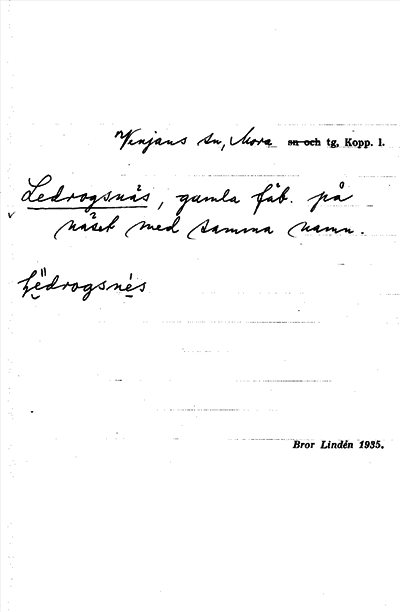 Venjans sn, Mora sn och tg, Kopp. l.
Ledrogsnäs, gamla fäb. på
v näset med samma namn.
Lëdrogsnés
Bror Lindén 1935.